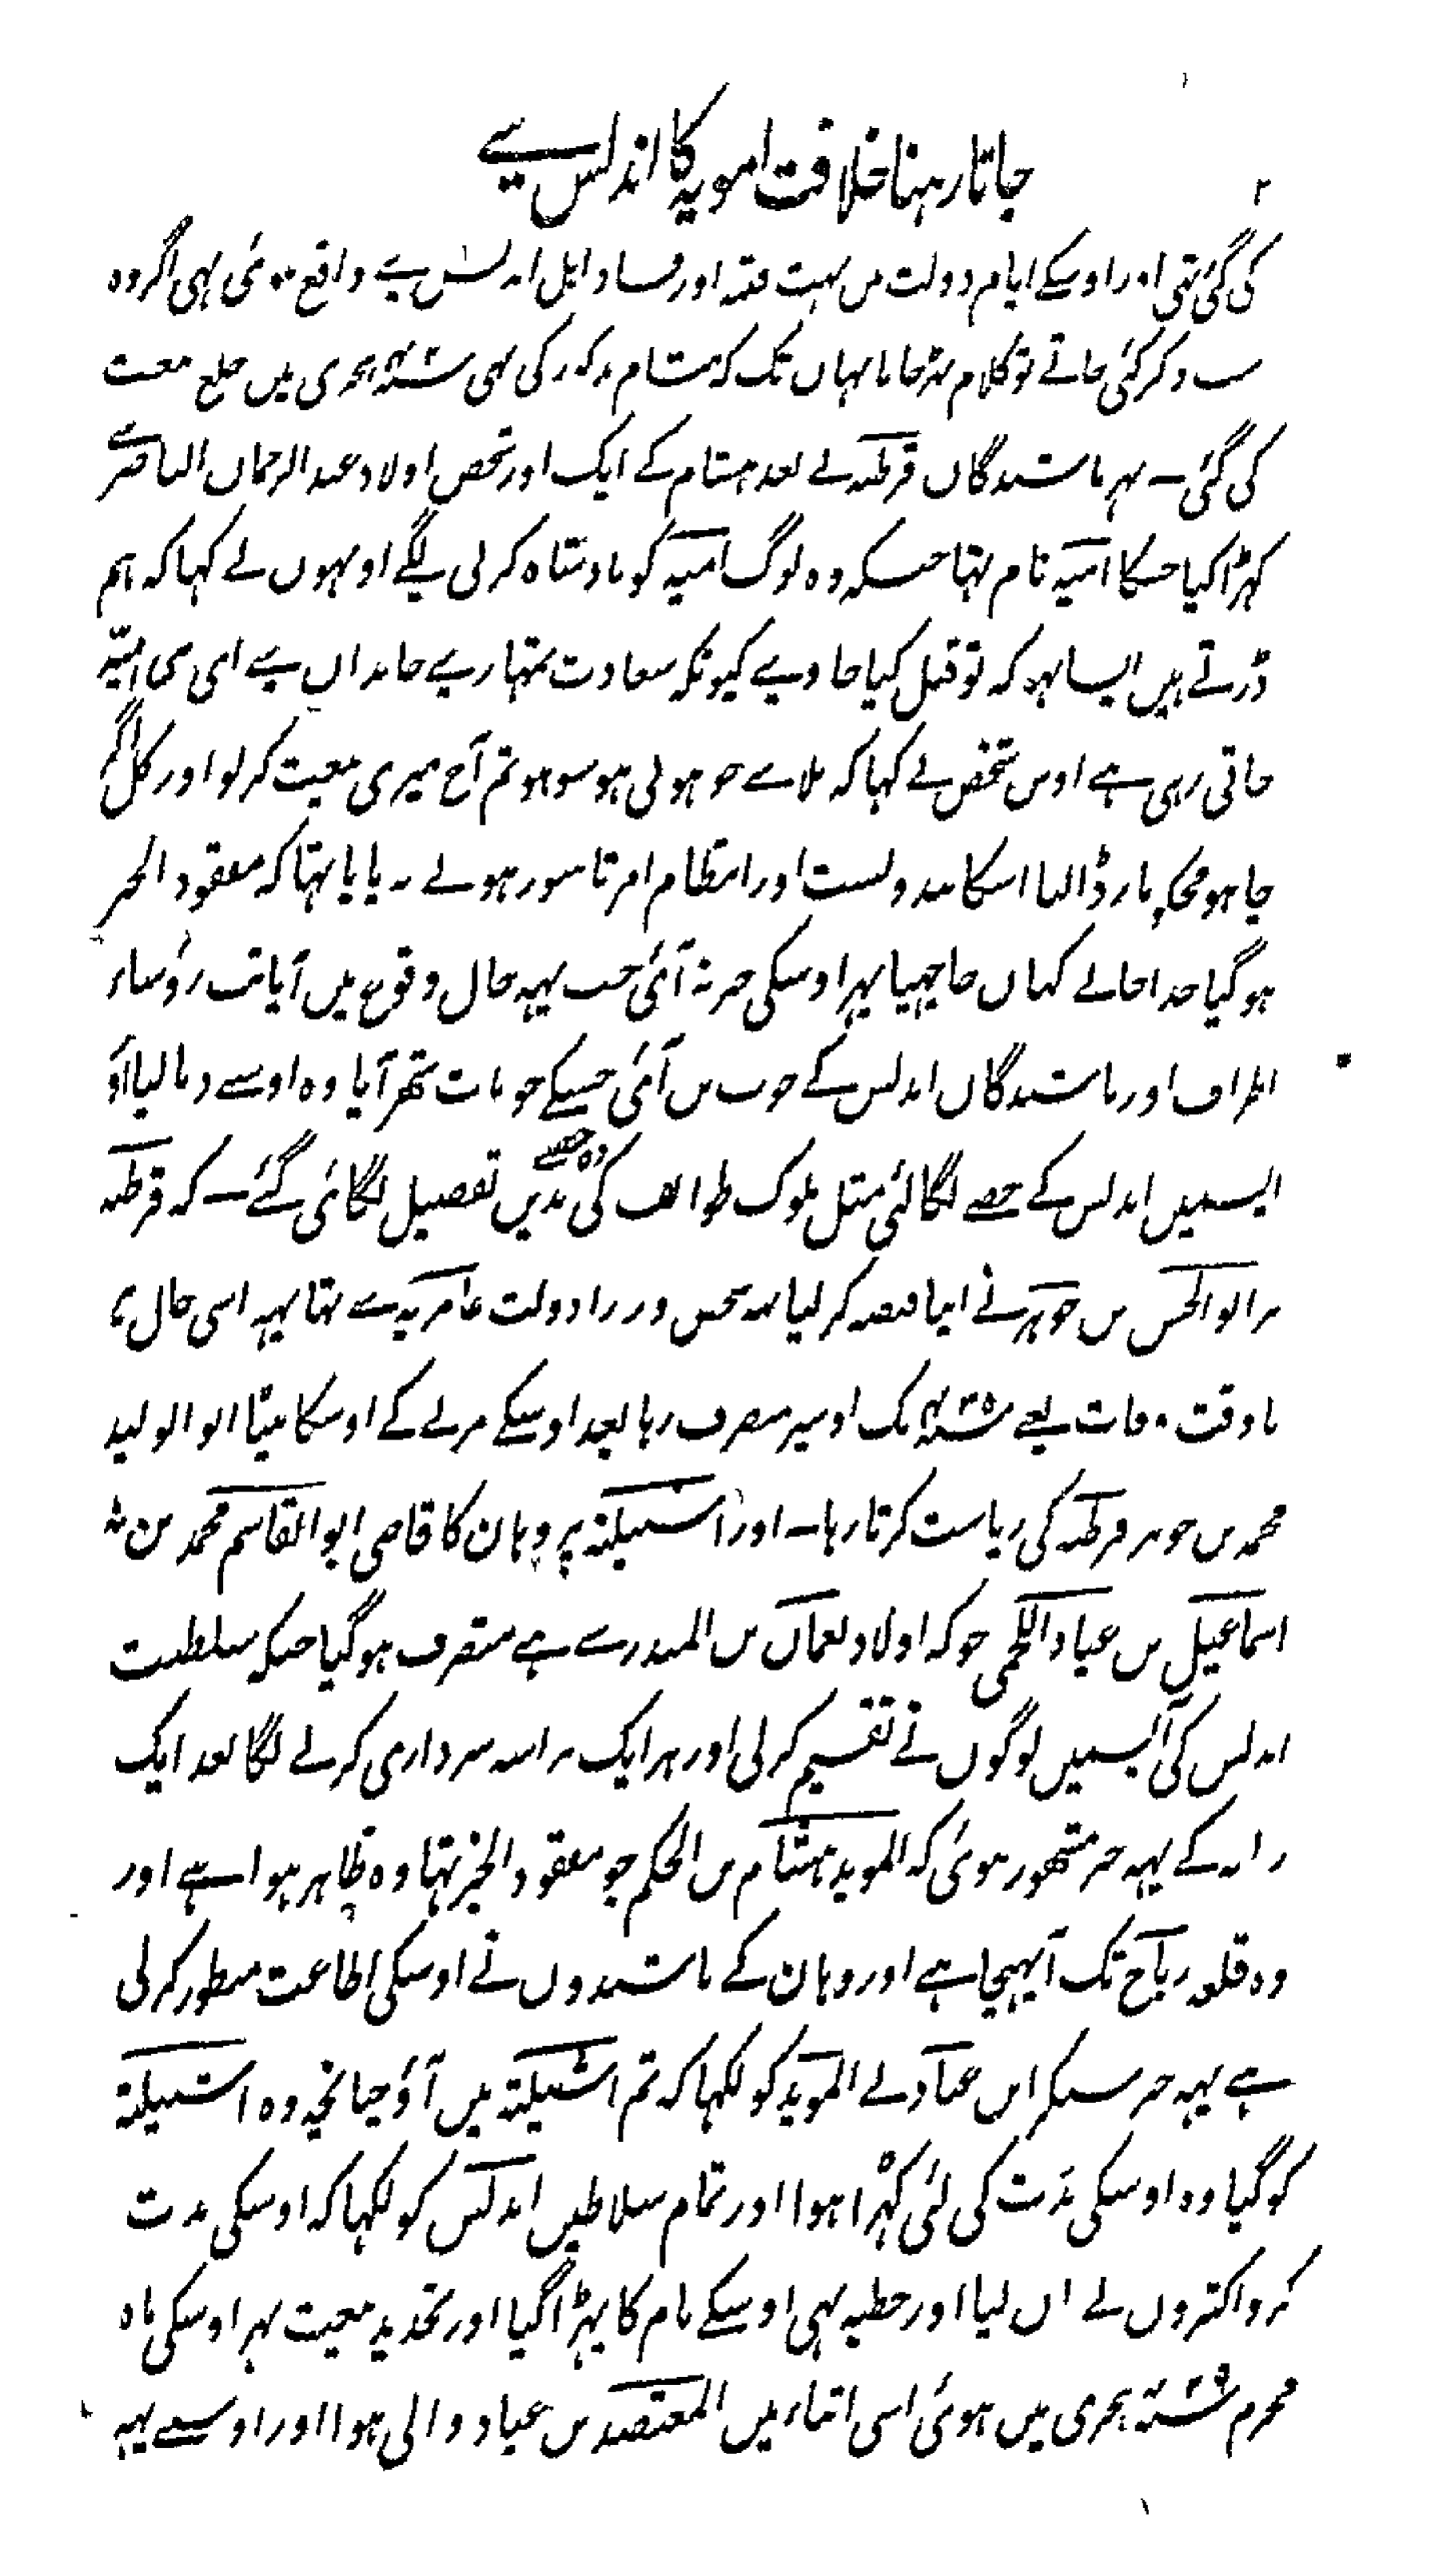 ۲
جاتا رہنا خلافت امویہ کا اندلس سے
کی گئی تہی اور اوسکے ایام دولت میں بہت فتنہ اور فساد اہل اندلس سے واقع ہوئی ہی اگر وہ
سب ذکر کئی جاتے تو کلام بڑھ جاتا یہاں تک کہ ہشام مذکور کی بہی ہجری میں خلع بیعت
کی گئی ۔ پہر باشندگان قرطبہ نے بعد ہشام کے ایک اور شخص اولاد عبد الرحمان الناصر سے
کہڑا کیا جسکا امیہ نام تہا جسکہ وہ لوگ امیہ کو بادشاہ کرنی لگے اونہوں نے کہا کہ ہم
ڈرتے ہیں ایسا نہو کہ تو قتل کیا جاوے کیونکہ سعادت تمہارے خاندان سے ای بنی امیّہ
جاتی رہی ہے اوس شخص نے کہا کہ بلا سے جو ہونی ہو سو ہو تم آج میری بیعت کر لو اور کل اگر
چاہو مجکو مار ڈالنا اسکا بندوبست اور انتظام امر تاسور ہونے نہ پایا تہا کہ مفقود الخبر
ہو گیا خدا جانے کہاں جا چہپا پہر اوسکی خبر نہ آئی جب یہہ حال وقوع میں آیا تب رؤساء
اطراف اور باشندگان اندلس کے خوب بن آئی جسکے جو بات تھر آیا وہ اوسے دبا لیا اور
ایسمیں اندلس کے حصے لگا لئی مثل ملوک طوائف کی وہ حصے بدیں تفصیل لگائی گئے ۔ کہ قرطبہ
پر ابو الحسن بن جوہر نے اپنا قبضہ کر لیا یہ شخص وزرا دولت عامریہ سے تہا یہہ اسی حال پر
تا وقت وفات یعنے تک اوسپر متصرف رہا بعد اوسکے مرنے کے اوسکا بیٹا ابو الولید
محمد بن جوہر قرطبہ کی ریاست کرتا رہا ۔ اور اشبیلیۃ پر وہان کا قاضی ابو القاسم محمد بن
اسماعیل بن عباد اللخمی جو کہ اولاد نعمان بن المنذر سے ہے متصرف ہو گیا جسکہ سلطنت
اندلس کی آپسمیں لوگوں نے تقسیم کر لی اور ہر ایک براسہ سرداری کرنے لگا بعد ایک
زمانہ کے یہہ خبر مشہور ہوئی کہ الموید ہشام بن الحکم جو مفقود الخبر تہا وہ ظاہر ہوا ہے اور
وہ قلعہ رباح تک آ پہنچا ہے اور وہان کے باشندوں نے اوسکی اطاعت منظور کر لی
ہے یہہ خبر سنکر ابن عباد نے الموید کو لکہا کہ تم اشبیلیۃ میں آؤ چنانچہ وہ اشبیلیۃ
کو گیا وہ اوسکی مدت کی لئی کہڑا ہوا اور تمام سلاطین اندلس کو لکہا کہ اوسکی مدت
کرو اکثروں نے ان لیا اور خطبہ بہی اوسکے نام کا پہڑا گیا اور تجدید بیعت پہر اوسکی ماہ
محرم ہجری میں ہوئی اسی اثناء میں المعتضد بن عباد والی ہوا اور اوسے یہہ